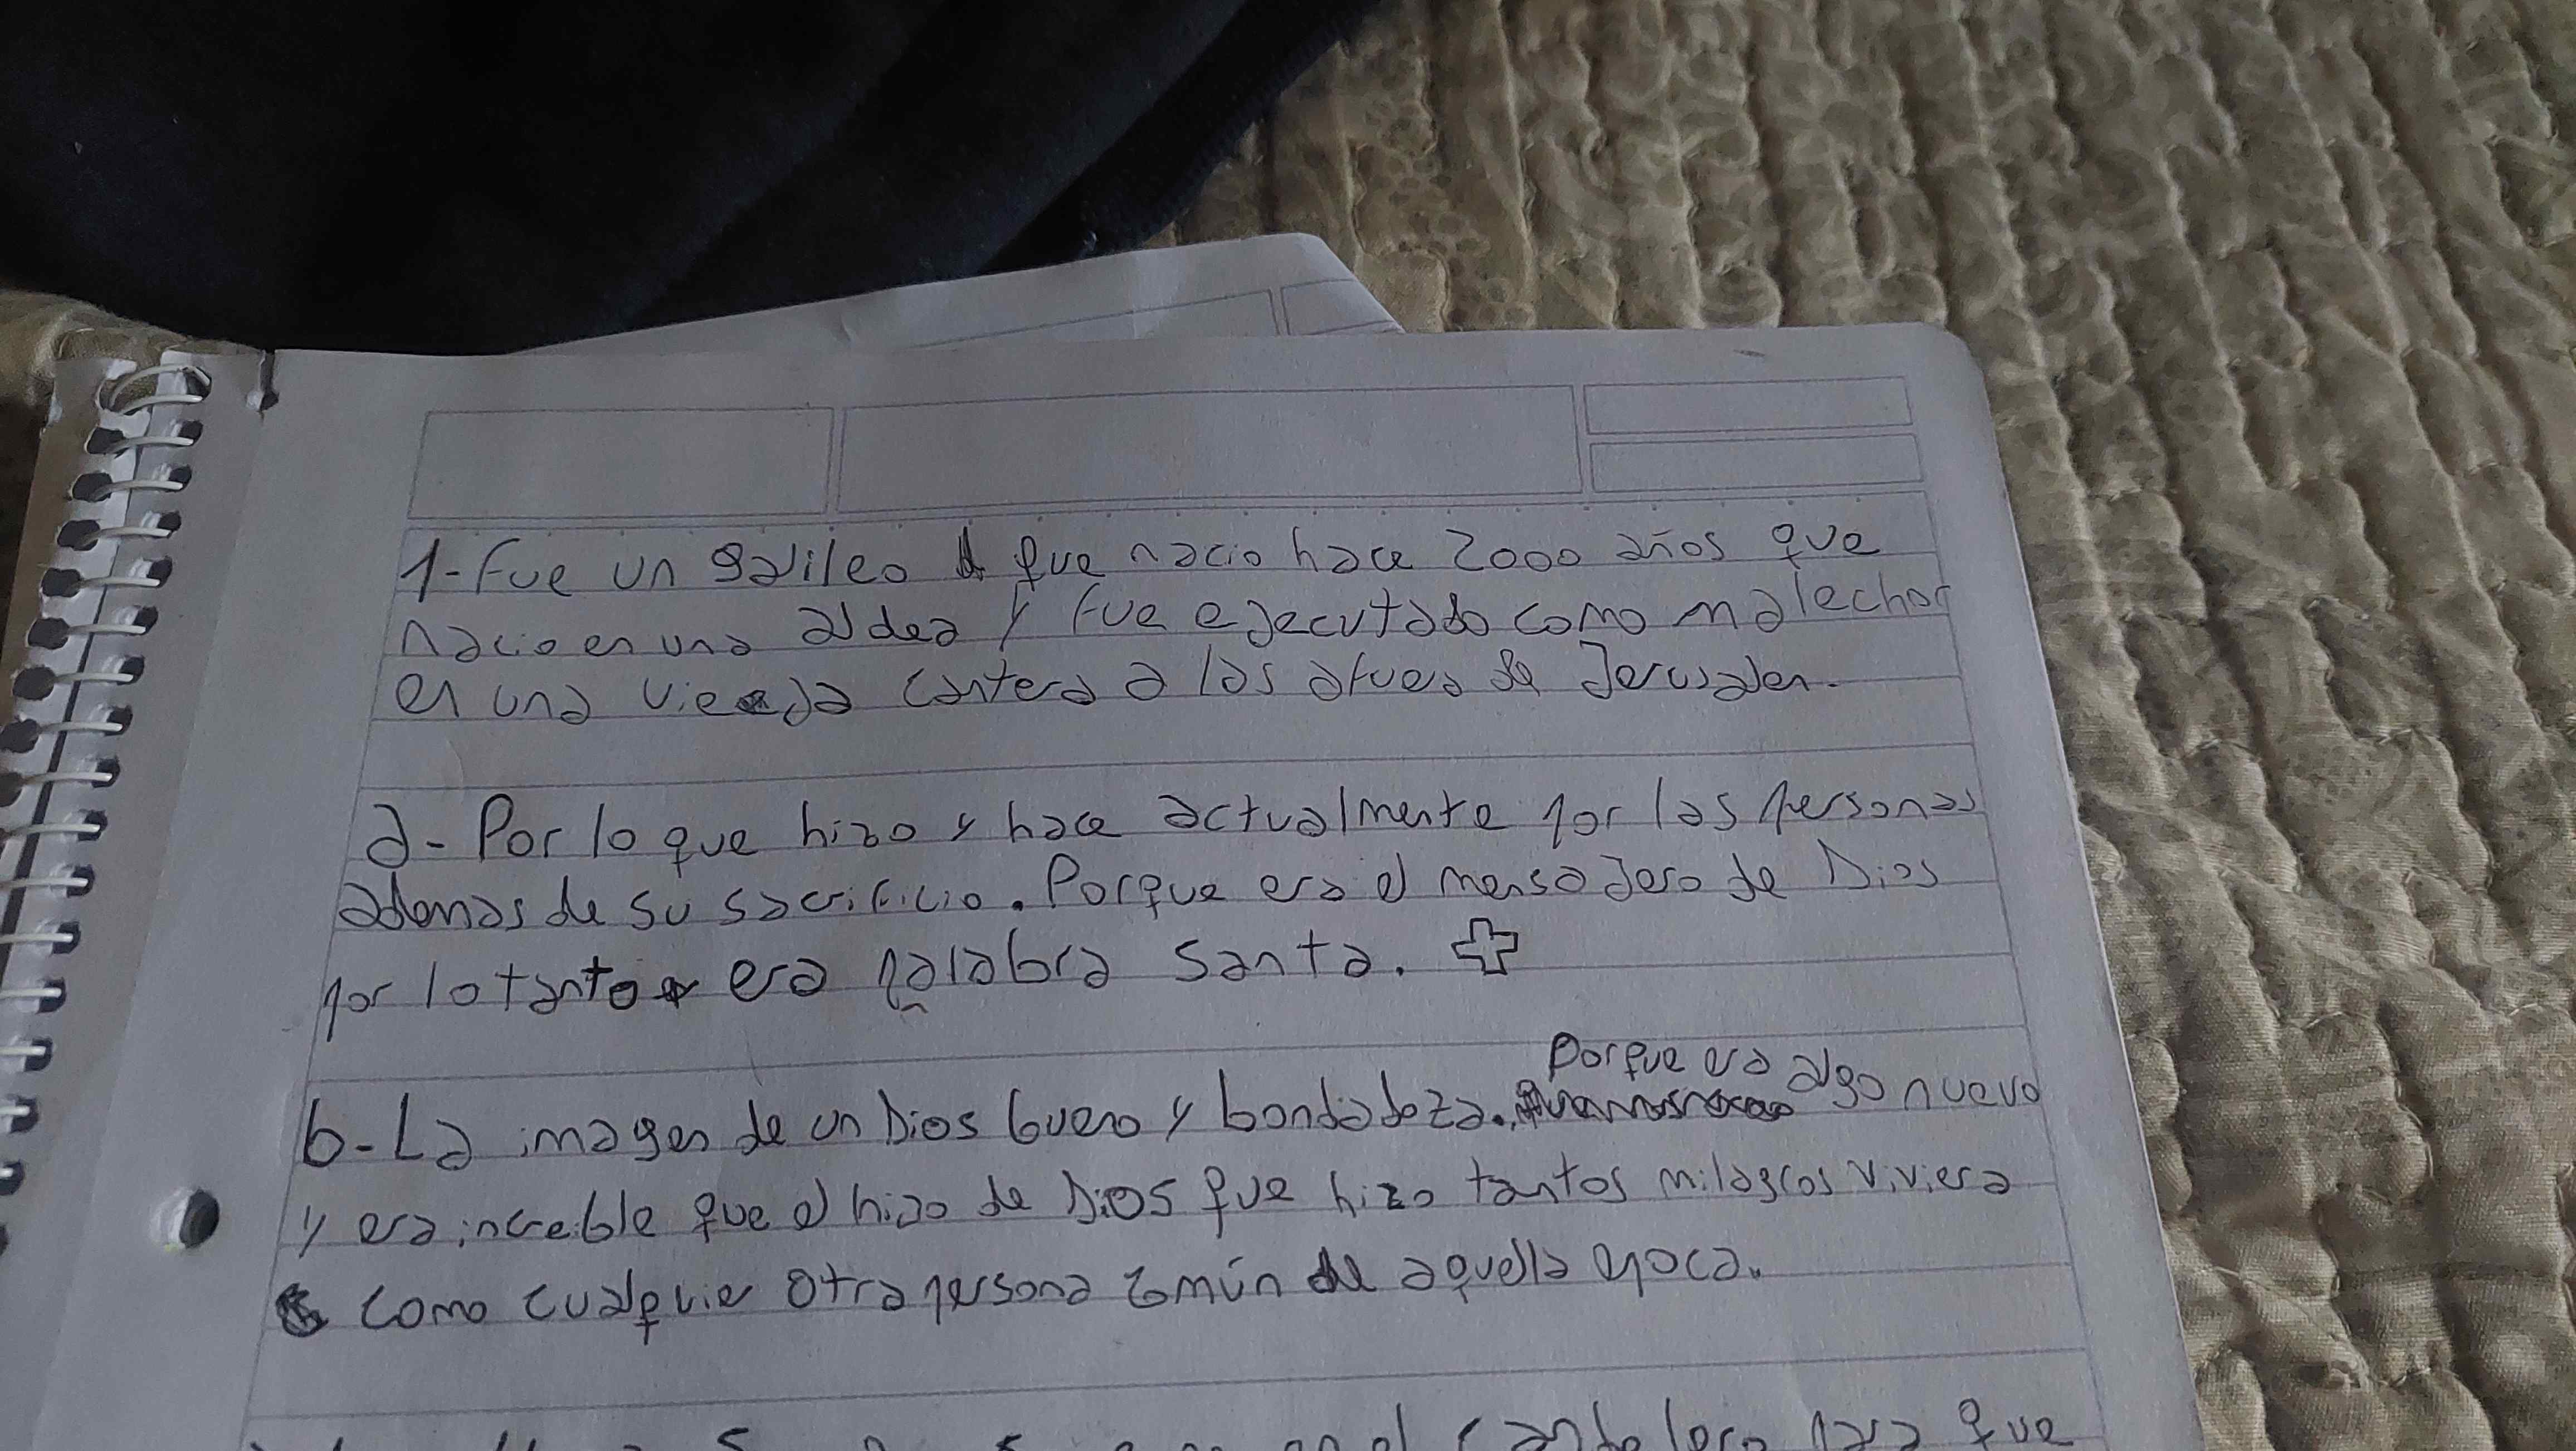 1-Fue un galileo que nacio hace 2000 años que
nacio en una aldea y fue ejecutado como malechor
en una vieja cantera a las afuera de Jerusalen.
a- Por lo que hizo y hace actualmente por las personas
ademas de su sacrificio. Porque era el mensajero de Dios
por lo tanto era palabra santa.
b- La imagen de un Dios bueno y bondadoza. Porque era algo nuevo
y era increible que el hijo de Dios que hizo tantos milagros viviera
como cualquier otra persona común de aquella epoca.
candelero para que